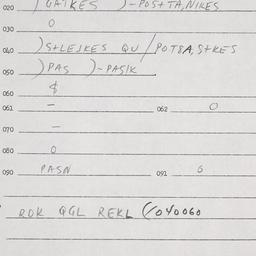 020 ) GATKES )-POS+TA,NIKES
030 0
040 )S+LEJKES QU/POT8A,S+KES
050 )PAS )-PASIK
060 $
061 - 062 0
070 -
080 0
090 PASN 091 6
RDK GGL REKL (/040060